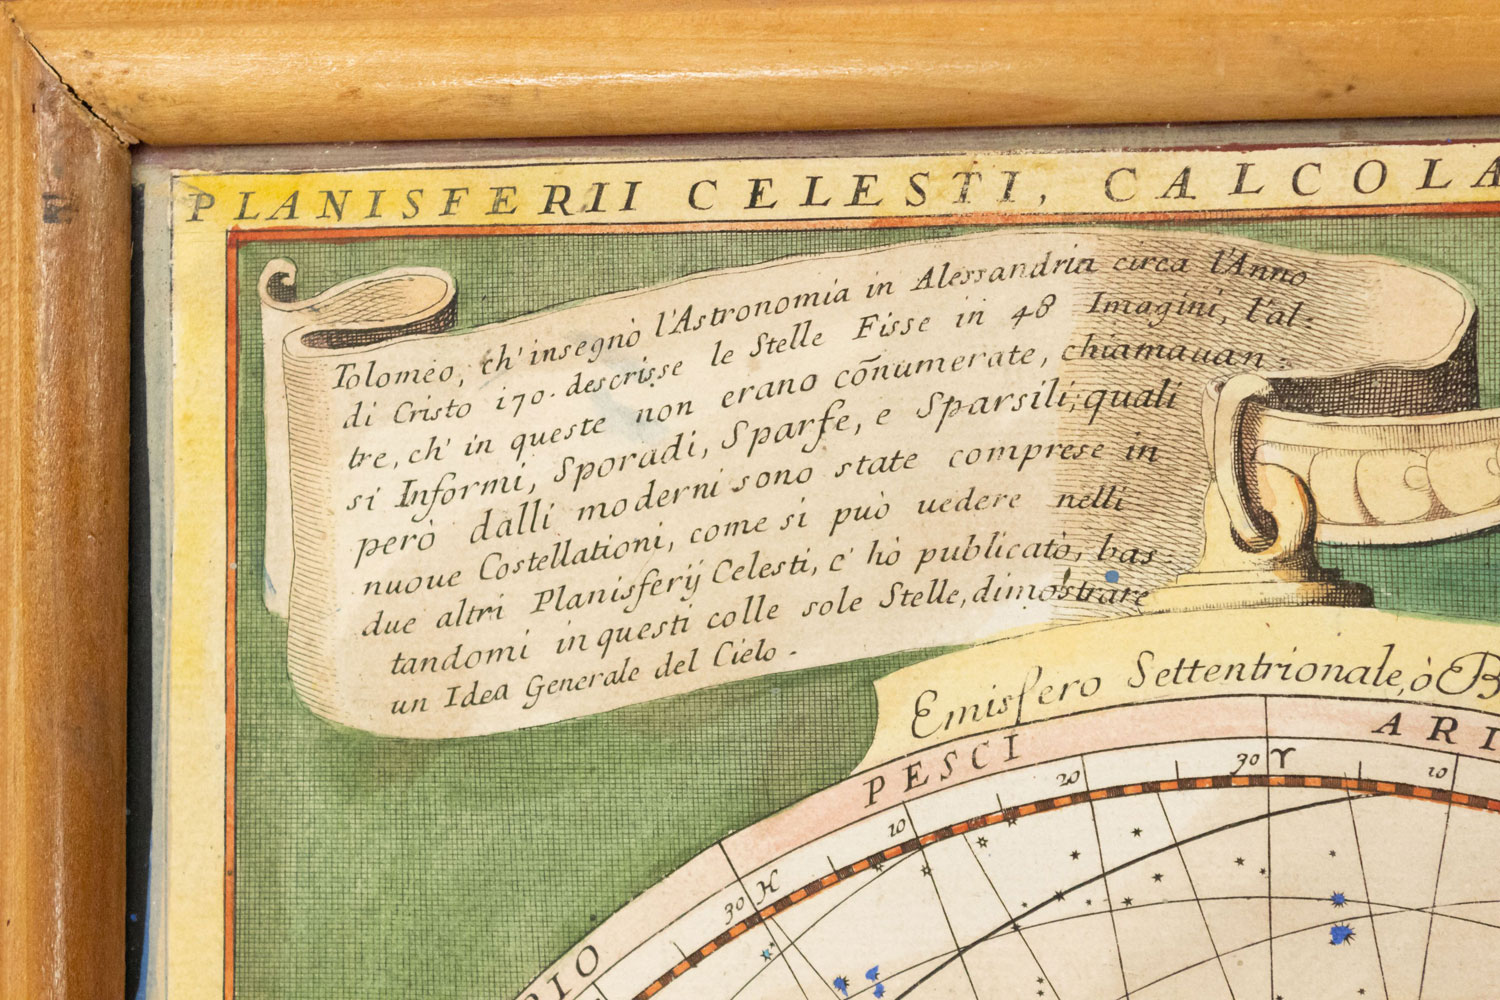 PLANISFERII CELESTI, CALCOLA
Tolomeo, ch' insegnò l'Astronomia in Alessandria circa l'Anno
di Cristo 170. descrisse le Stelle Fisse in 48 Imagini, l'al:
tre, ch' in queste non erano cõnumerate, chiamauan:
si Informi, Sporadi, Sparse, e Sparsili; quali
però dalli moderni sono state comprese in
nuoue Costellationi, come si può uedere nelli
due altri Planisferij Celesti, c' hò publicatò, bas:
tandomi in questi colle sole Stelle, dimostrare
un Idea Generale del Cielo.
Emisfero Settentrionale, ò B
PESCI ARI
10 20 30 ♈ 10
30 ♓
RIO